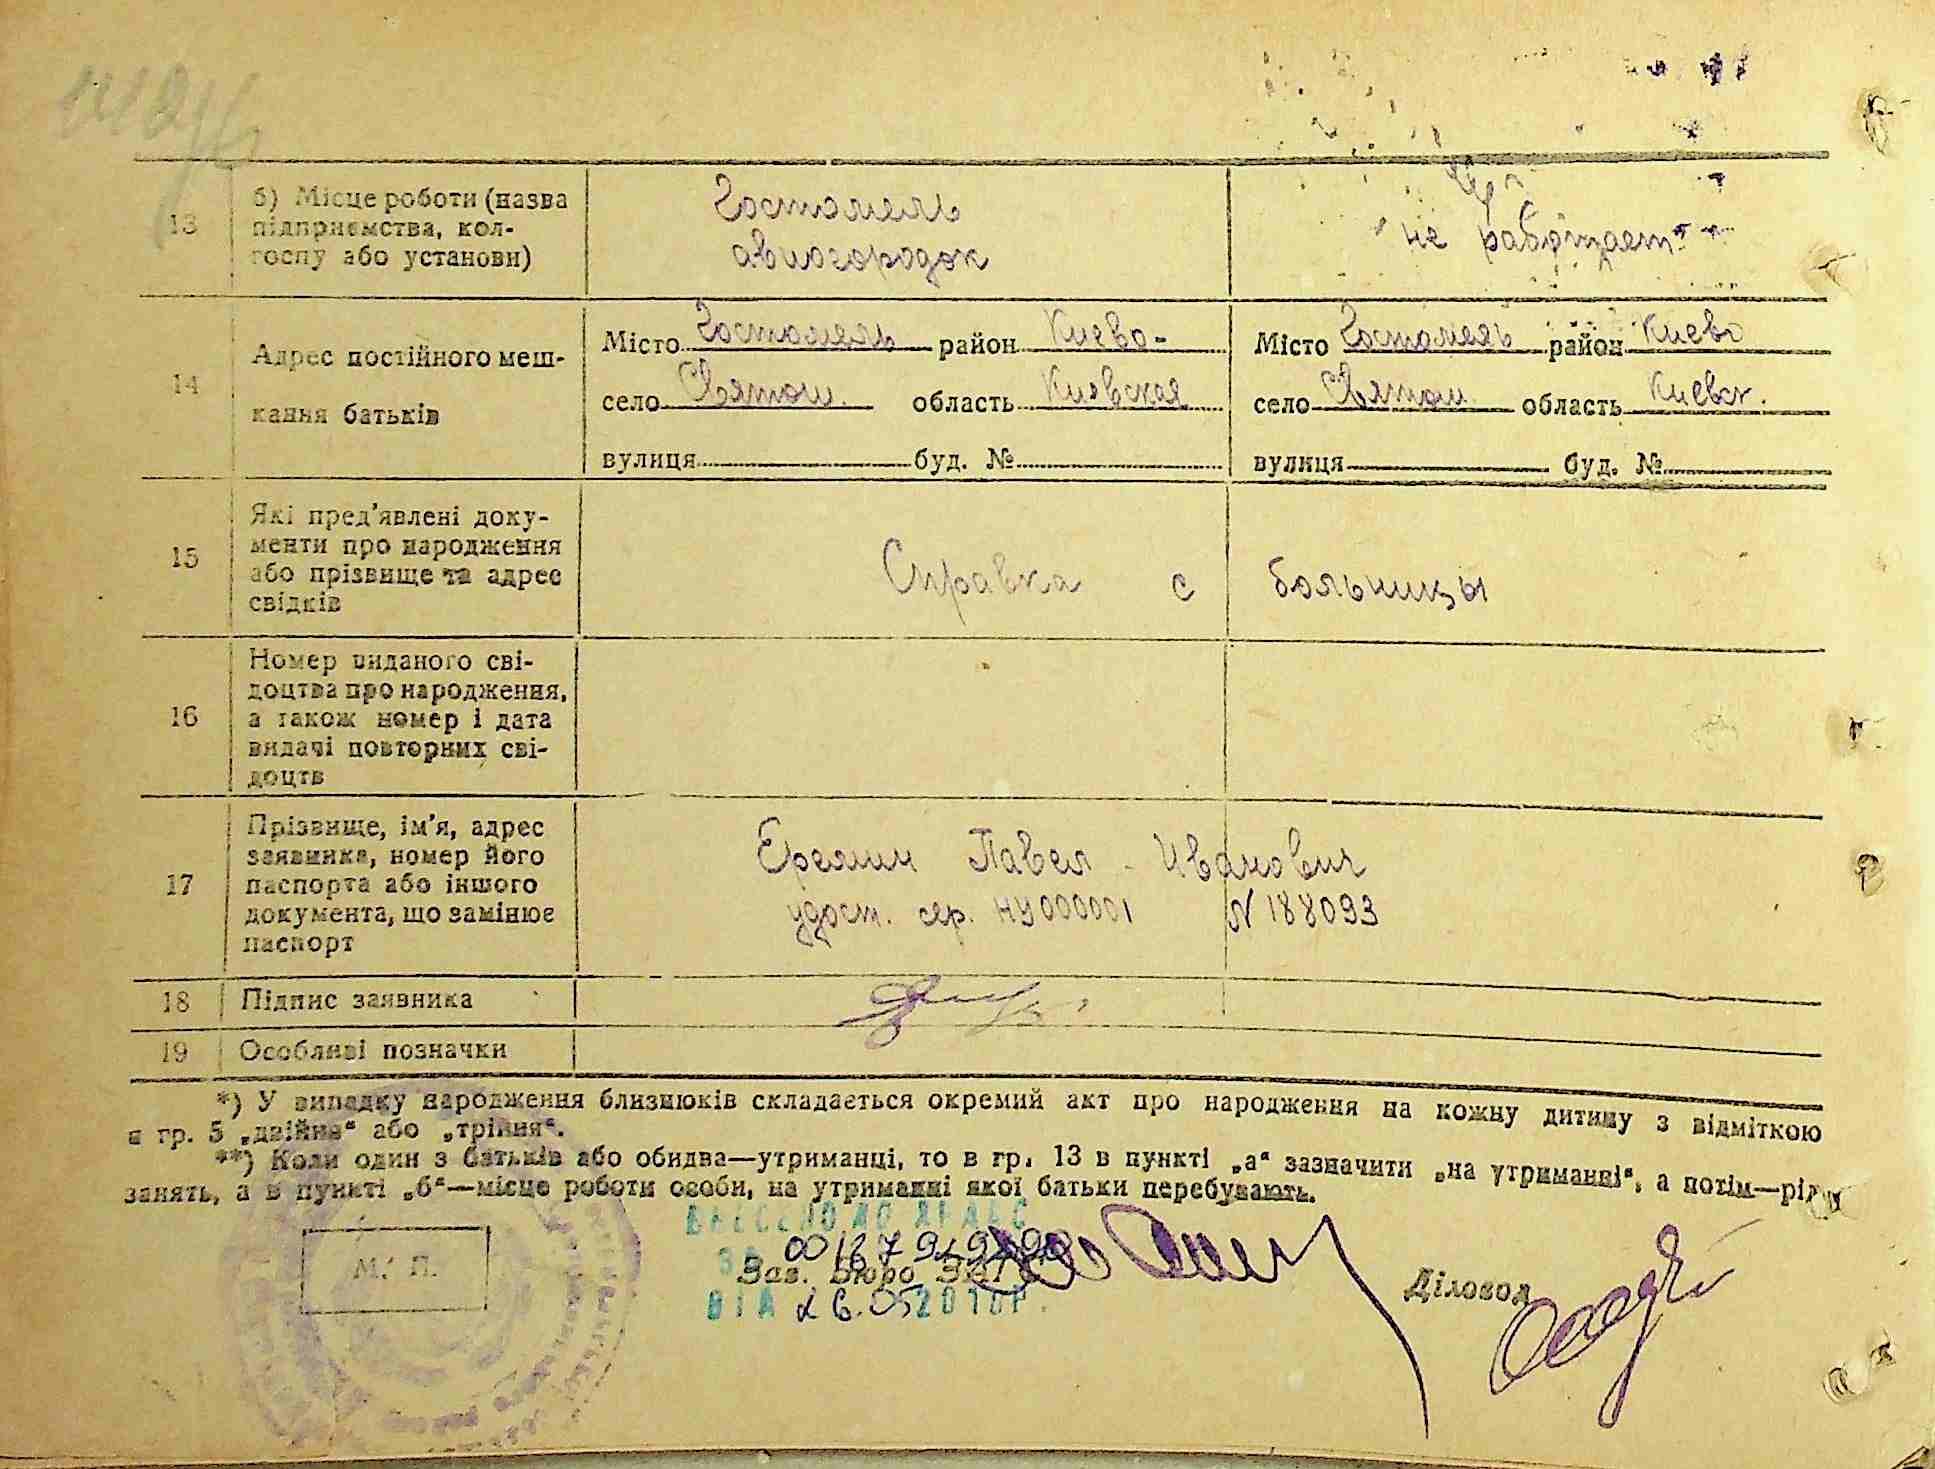 13
б) Місце роботи (назва
підприємства, кол-
госпу або установи)
Гостомель
авиогородок
не работает
14
Адрес постійного меш-
кання батьків
Місто Гостомель район Киево-
село Святош. область Киевская
вулиця буд. №
Місто Гостомель район Киево
село Святош. область Киевск.
вулиця буд. №
15
Які пред'явлені доку-
менти про народження
або прізвище та адрес
свідків
Справка с больницы
16
Номер виданого сві-
доцтва про народження,
а також номер і дата
видачі повторних сві-
доцтв
17
Прізвище, ім'я, адрес
заявника, номер його
паспорта або іншого
документа, що замінює
паспорт
Еремин Павел Иванович
удост. сер. НУ000001 N 188093
18
Підпис заявника
19
Особливі позначки
*) У випадку народження близнюків складається окремий акт про народження на кожну дитину з відміткою
в гр. 5 „двійня“ або „трійня“.
**) Коли один з батьків або обидва—утриманці, то в гр. 13 в пункті „а“ зазначити „на утриманні“, а потім—рід
занять, а в пункті „б“—місце роботи особи, на утриманні якої батьки перебувають.
М. П.
ВНЕСЕНО ДО ДРАЦС
Зав. Бюро ЗАГС
ВІД 26.05 2018р.
Діловод